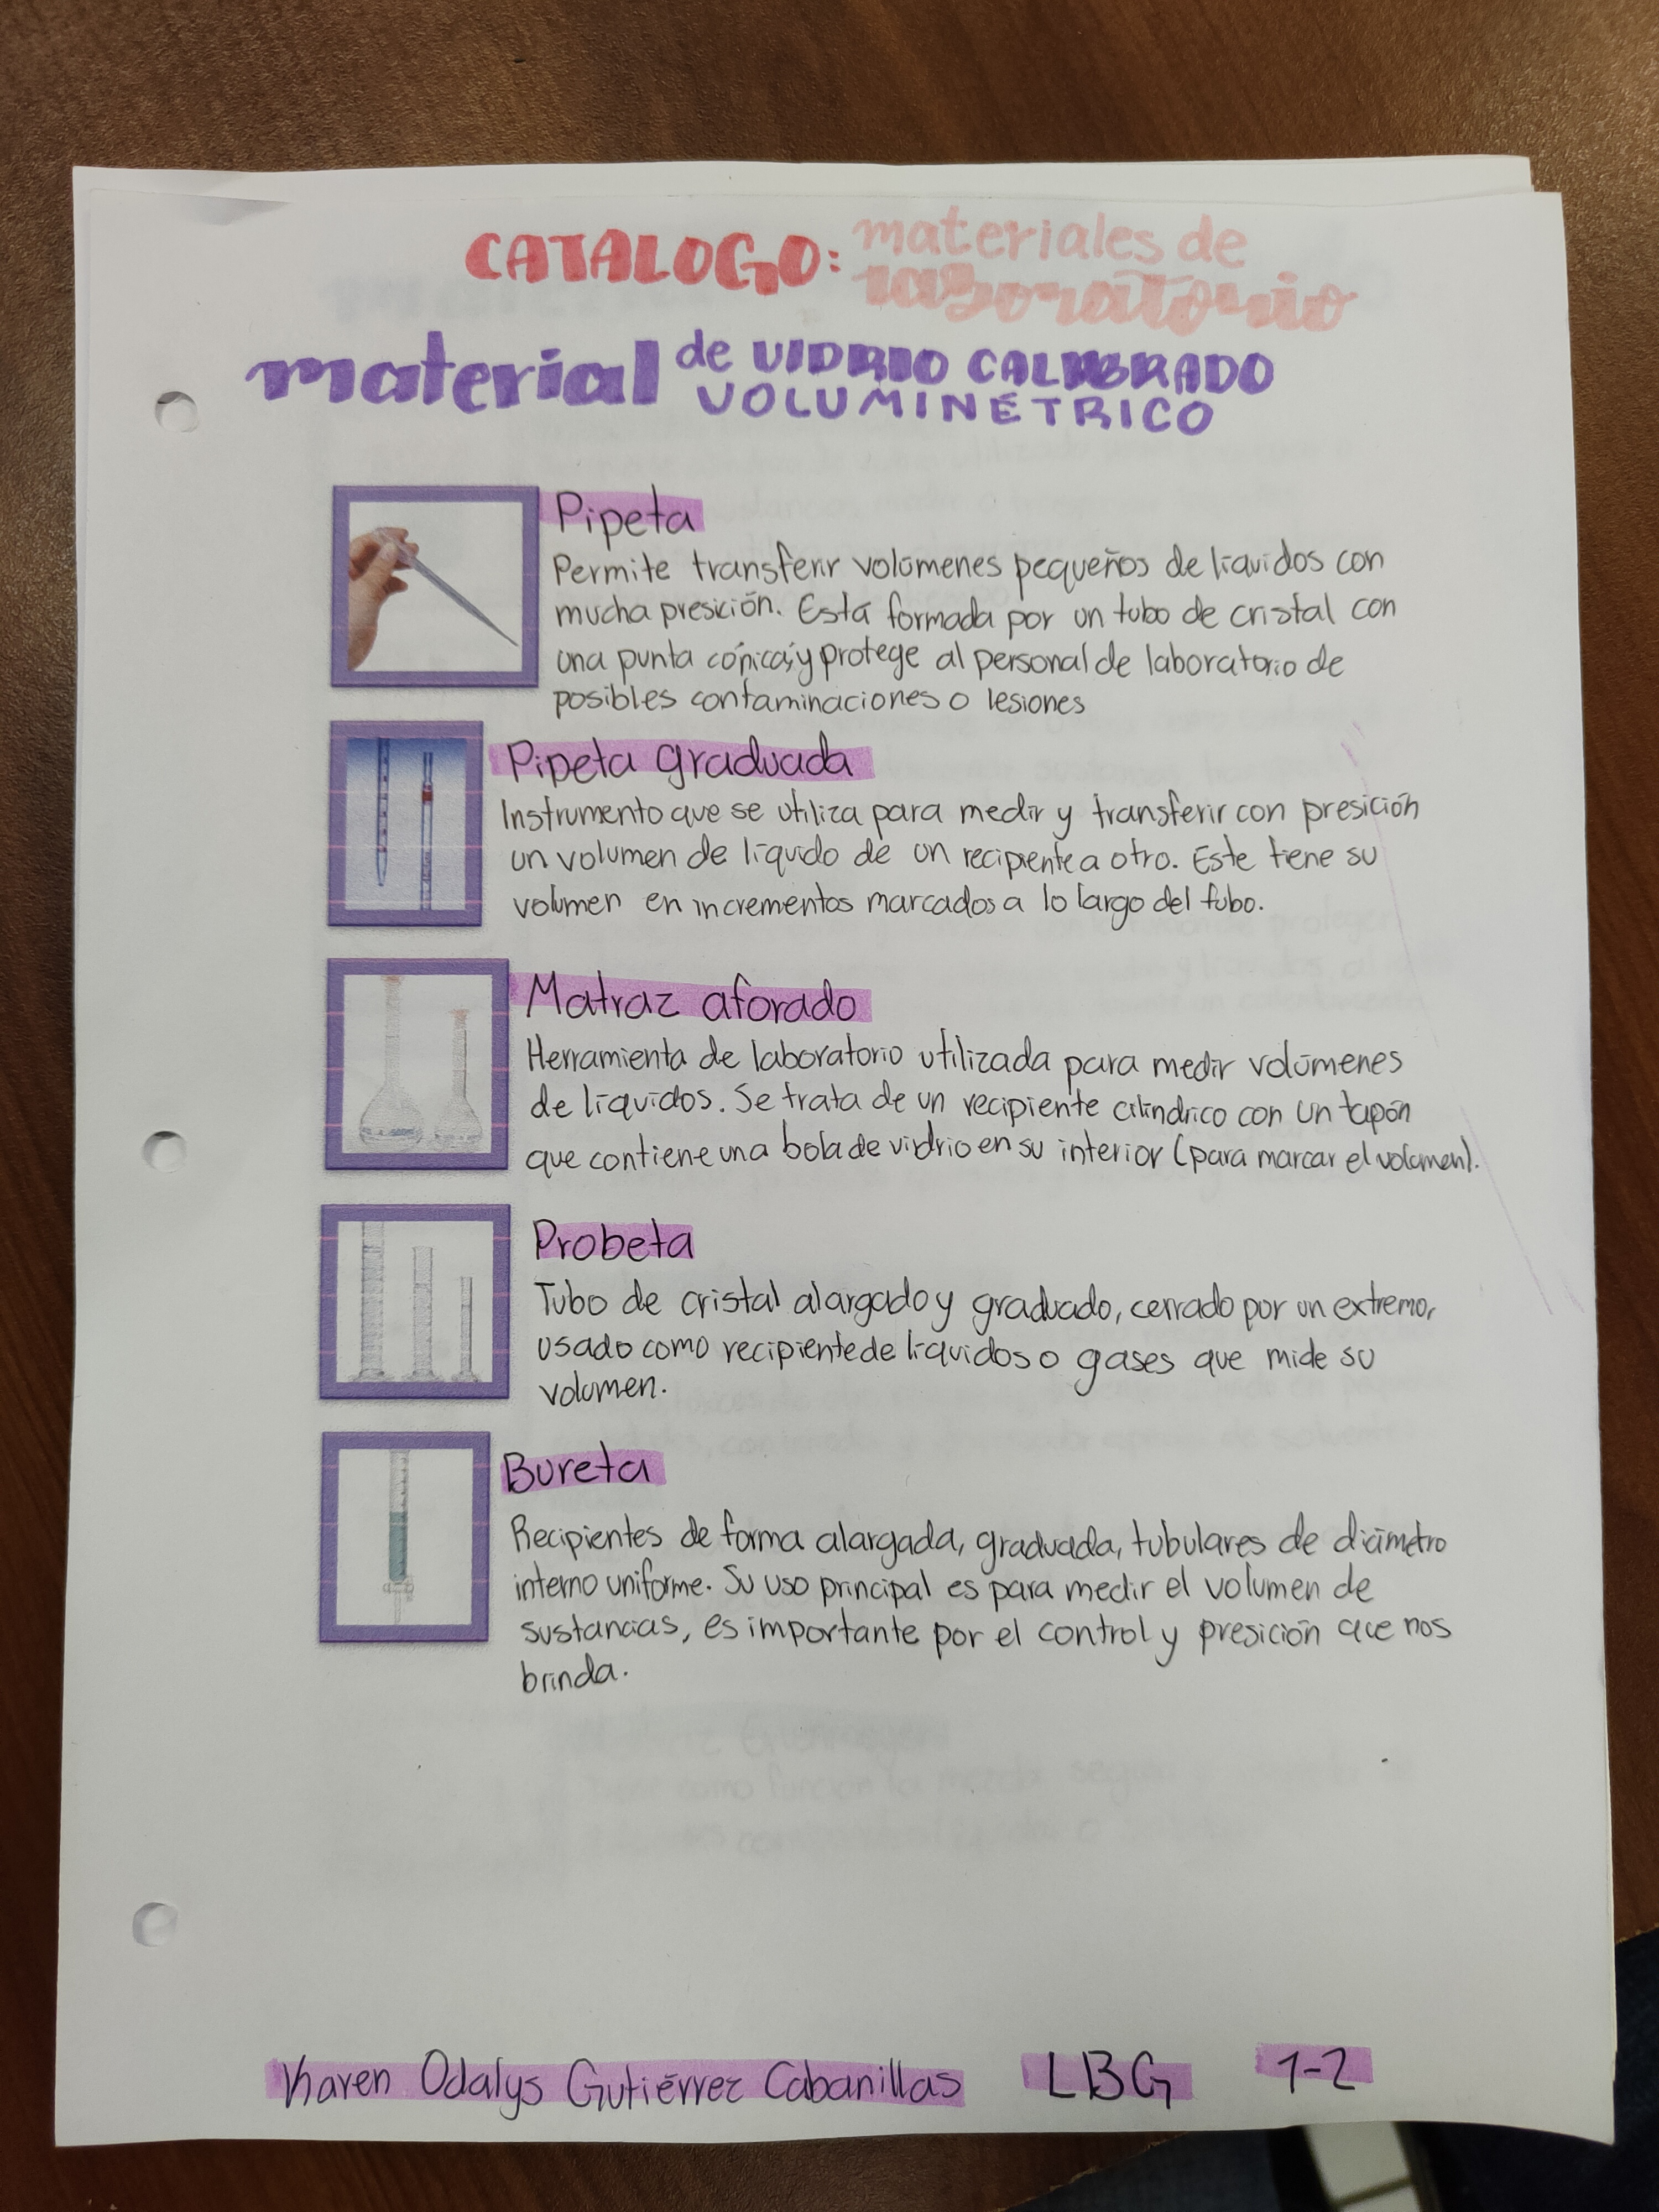 CATALOGO: materiales de
laboratorio
material de VIDRIO CALIBRADO
VOLUMINÉTRICO
Pipeta
Permite transferir volúmenes pequeños de líquidos con
mucha presición. Está formada por un tubo de cristal con
una punta cónica, y protege al personal de laboratorio de
posibles contaminaciones o lesiones
Pipeta graduada
Instrumento que se utiliza para medir y transferir con presición
un volumen de líquido de un recipiente a otro. Este tiene su
volumen en incrementos marcados a lo largo del tubo.
Matraz aforado
Herramienta de laboratorio utilizada para medir volúmenes
de líquidos. Se trata de un recipiente cilíndrico con un tapón
que contiene una bola de vidrio en su interior (para marcar el volumen).
Probeta
Tubo de cristal alargado y graduado, cerrado por un extremo,
usado como recipiente de líquidos o gases que mide su
volumen.
Bureta
Recipientes de forma alargada, graduada, tubulares de diámetro
interno uniforme. Su uso principal es para medir el volumen de
sustancias, es importante por el control y presición que nos
brinda.
Karen Odalys Gutiérrez Cabanillas LBG 1-2